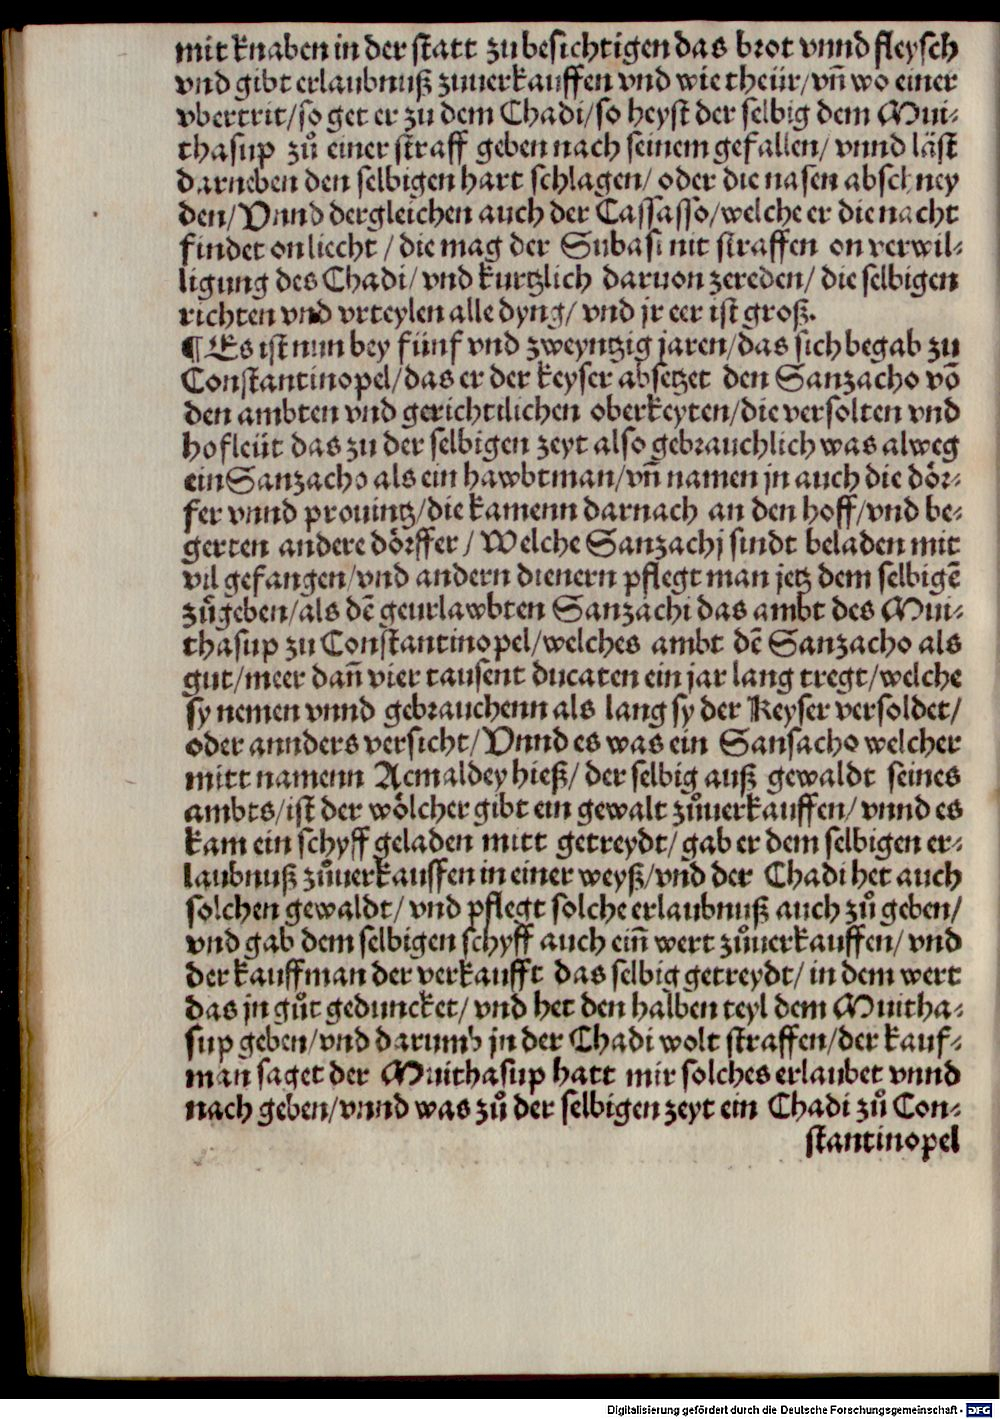 mit knaben in der statt zu besichtigen das brot vnnd fleysch
vnd gibt erlaubnuß zuuerkauffen vnd wie theür/ vn̄ wo einer
vbertrit/ so get er zu dem Chadi/ so heyst der selbig dem Mui-
thasup zů einer straff geben nach seinem gefallen/ vnnd läst
darneben den selbigen hart schlagen/ oder die nasen abschney
den/ Vnnd dergleichen auch der Cassasso/ welche er die nacht
findet on liecht / die mag der Subasi nit straffen on verwil-
ligung des Chadi/ vnd kurtzlich daruon zereden/ die selbigen
richten vnd vrteylen alle dyng/ vnd jr eer ist groß.
¶ Es ist nun bey fünf vnd zweyntzig jaren/ das sich begab zu
Constantinopel/ das er der keyser absetzet den Sanzacho vō
den ambten vnd gerichtilichen oberkeyten/ die versolten vnd
hofleüt das zu der selbigen zeyt also gebrauchlich was alweg
ein Sanzacho als ein hawbtman/ vn̄ namen jn auch die dör-
fer vnnd prouintz/ die kamenn darnach an den hoff/ vnd be-
gerten andere dörffer / Welche Sanzachj sindt beladen mit
vil gefangen/ vnd andern dienern pflegt man jetz dem selbigē
zůgeben/ als dē geurlawbten Sanzachi das ambt des Mui-
thasup zu Constantinopel/ welches ambt dē Sanzacho als
gut/ meer dan̄ vier tausent ducaten ein jar lang tregt/ welche
sy nemen vnnd gebrauchenn als lang sy der Keyser versoldet/
oder annders versicht/ Vnnd es was ein Sansacho welcher
mitt namenn Acmaldey hieß/ der selbig auß gewaldt seines
ambts/ ist der wölcher gibt ein gewalt zůuerkauffen/ vnnd es
kam ein schyff geladen mitt getreydt/ gab er dem selbigen er-
laubnuß zůuerkauffen in einer weyß/ vnd der Chadi het auch
solchen gewaldt/ vnd pflegt solche erlaubnuß auch zů geben/
vnd gab dem selbigen schyff auch ein̄ wert zůuerkauffen/ vnd
der kauffman der verkaufft das selbig getreydt/ in dem wert
das jn gůt geduncket/ vnd het den halben teyl dem Muitha-
sup geben/ vnd darumb jn der Chadi wolt straffen/ der kauf-
man saget der Muithasup hatt mir solches erlaubet vnnd
nach geben/ vnnd was zů der selbigen zeyt ein Chadi zů Con-
stantinopel
Digitalisierung gefördert durch die Deutsche Forschungsgemeinschaft - DFG